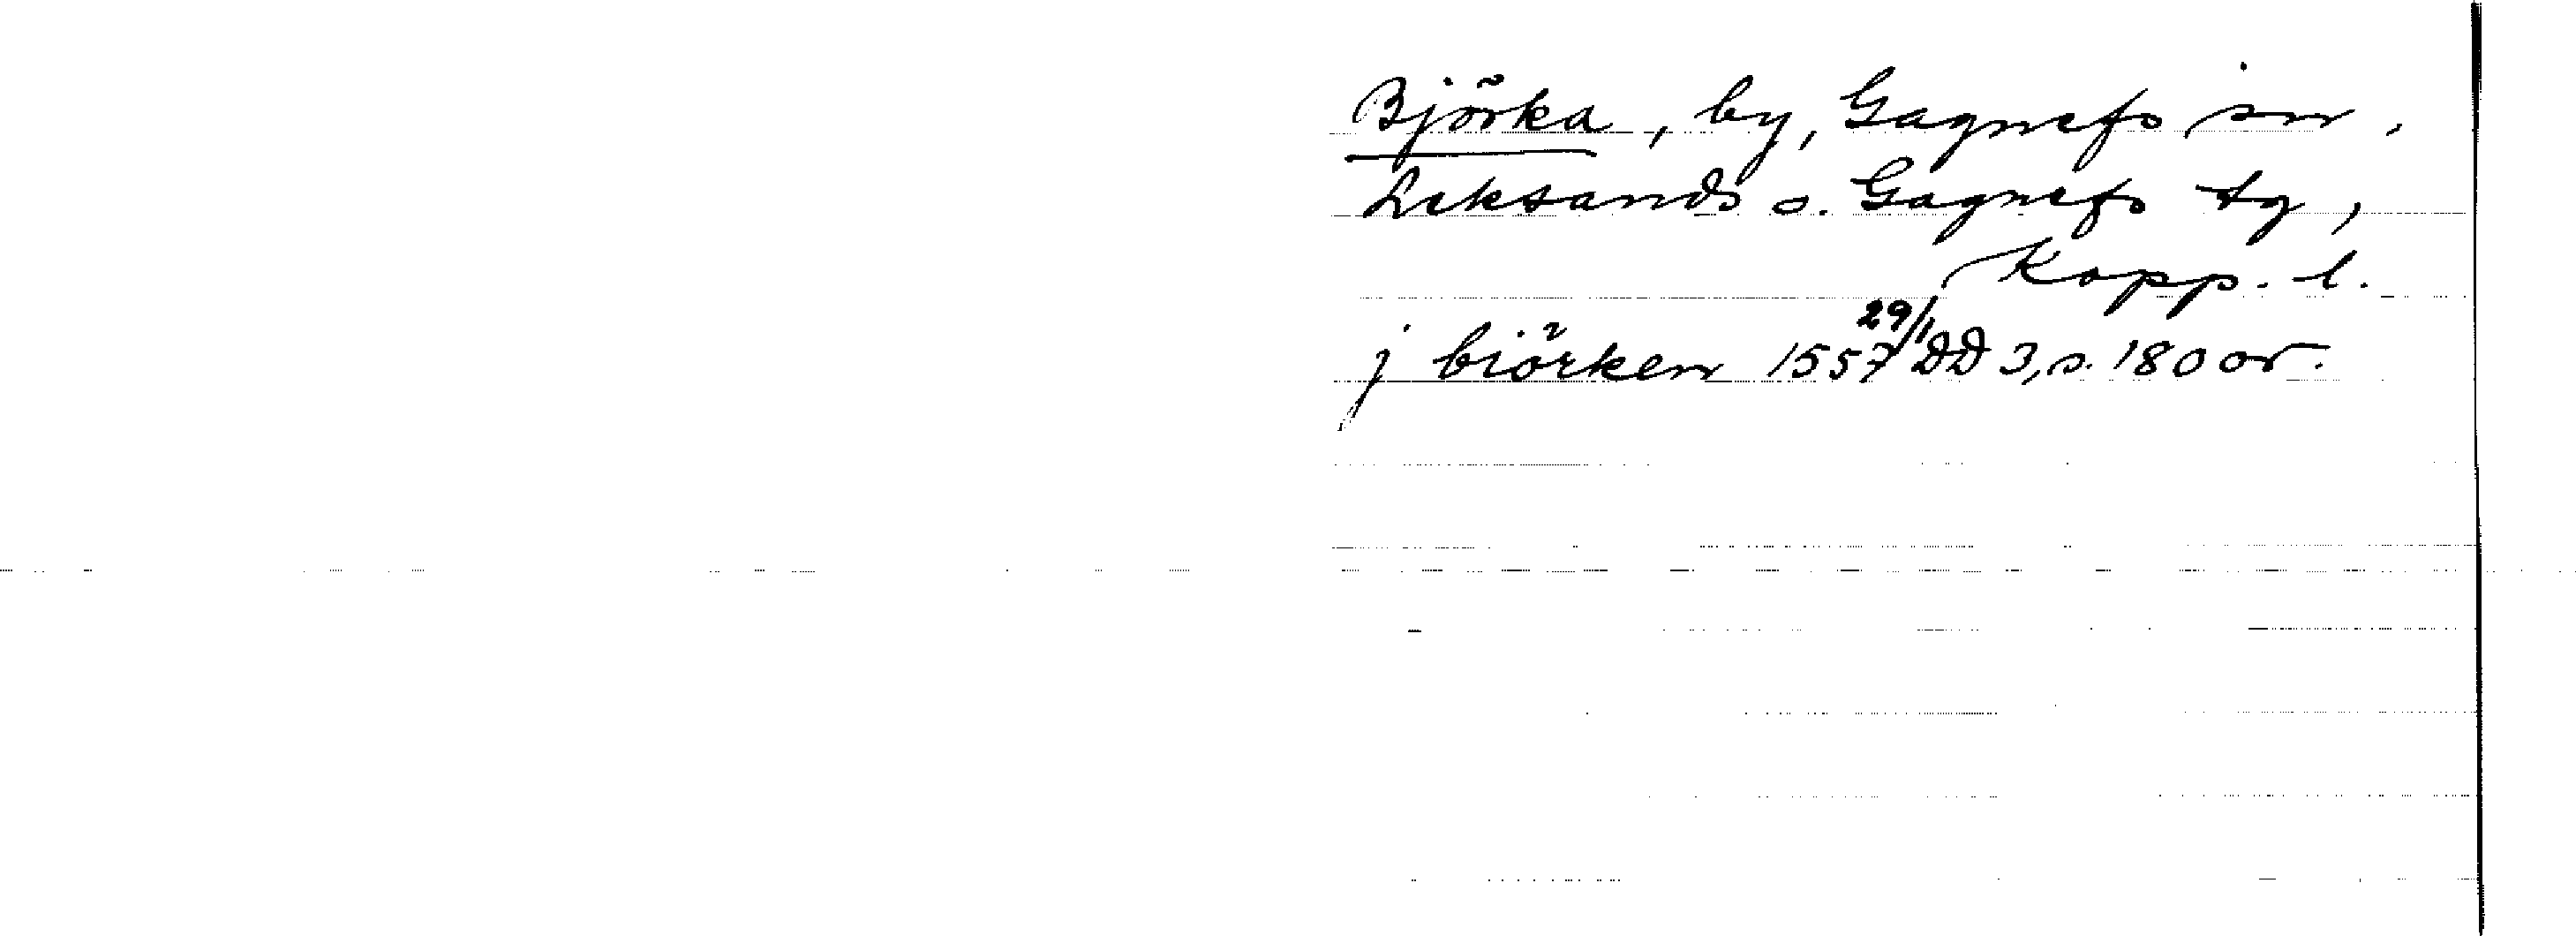 Björka, by, Gagnefs sn,
Leksands o. Gagnefs tg,
Kopp. l.
j biörken 1557 29/1 DD 3, s. 180 or.